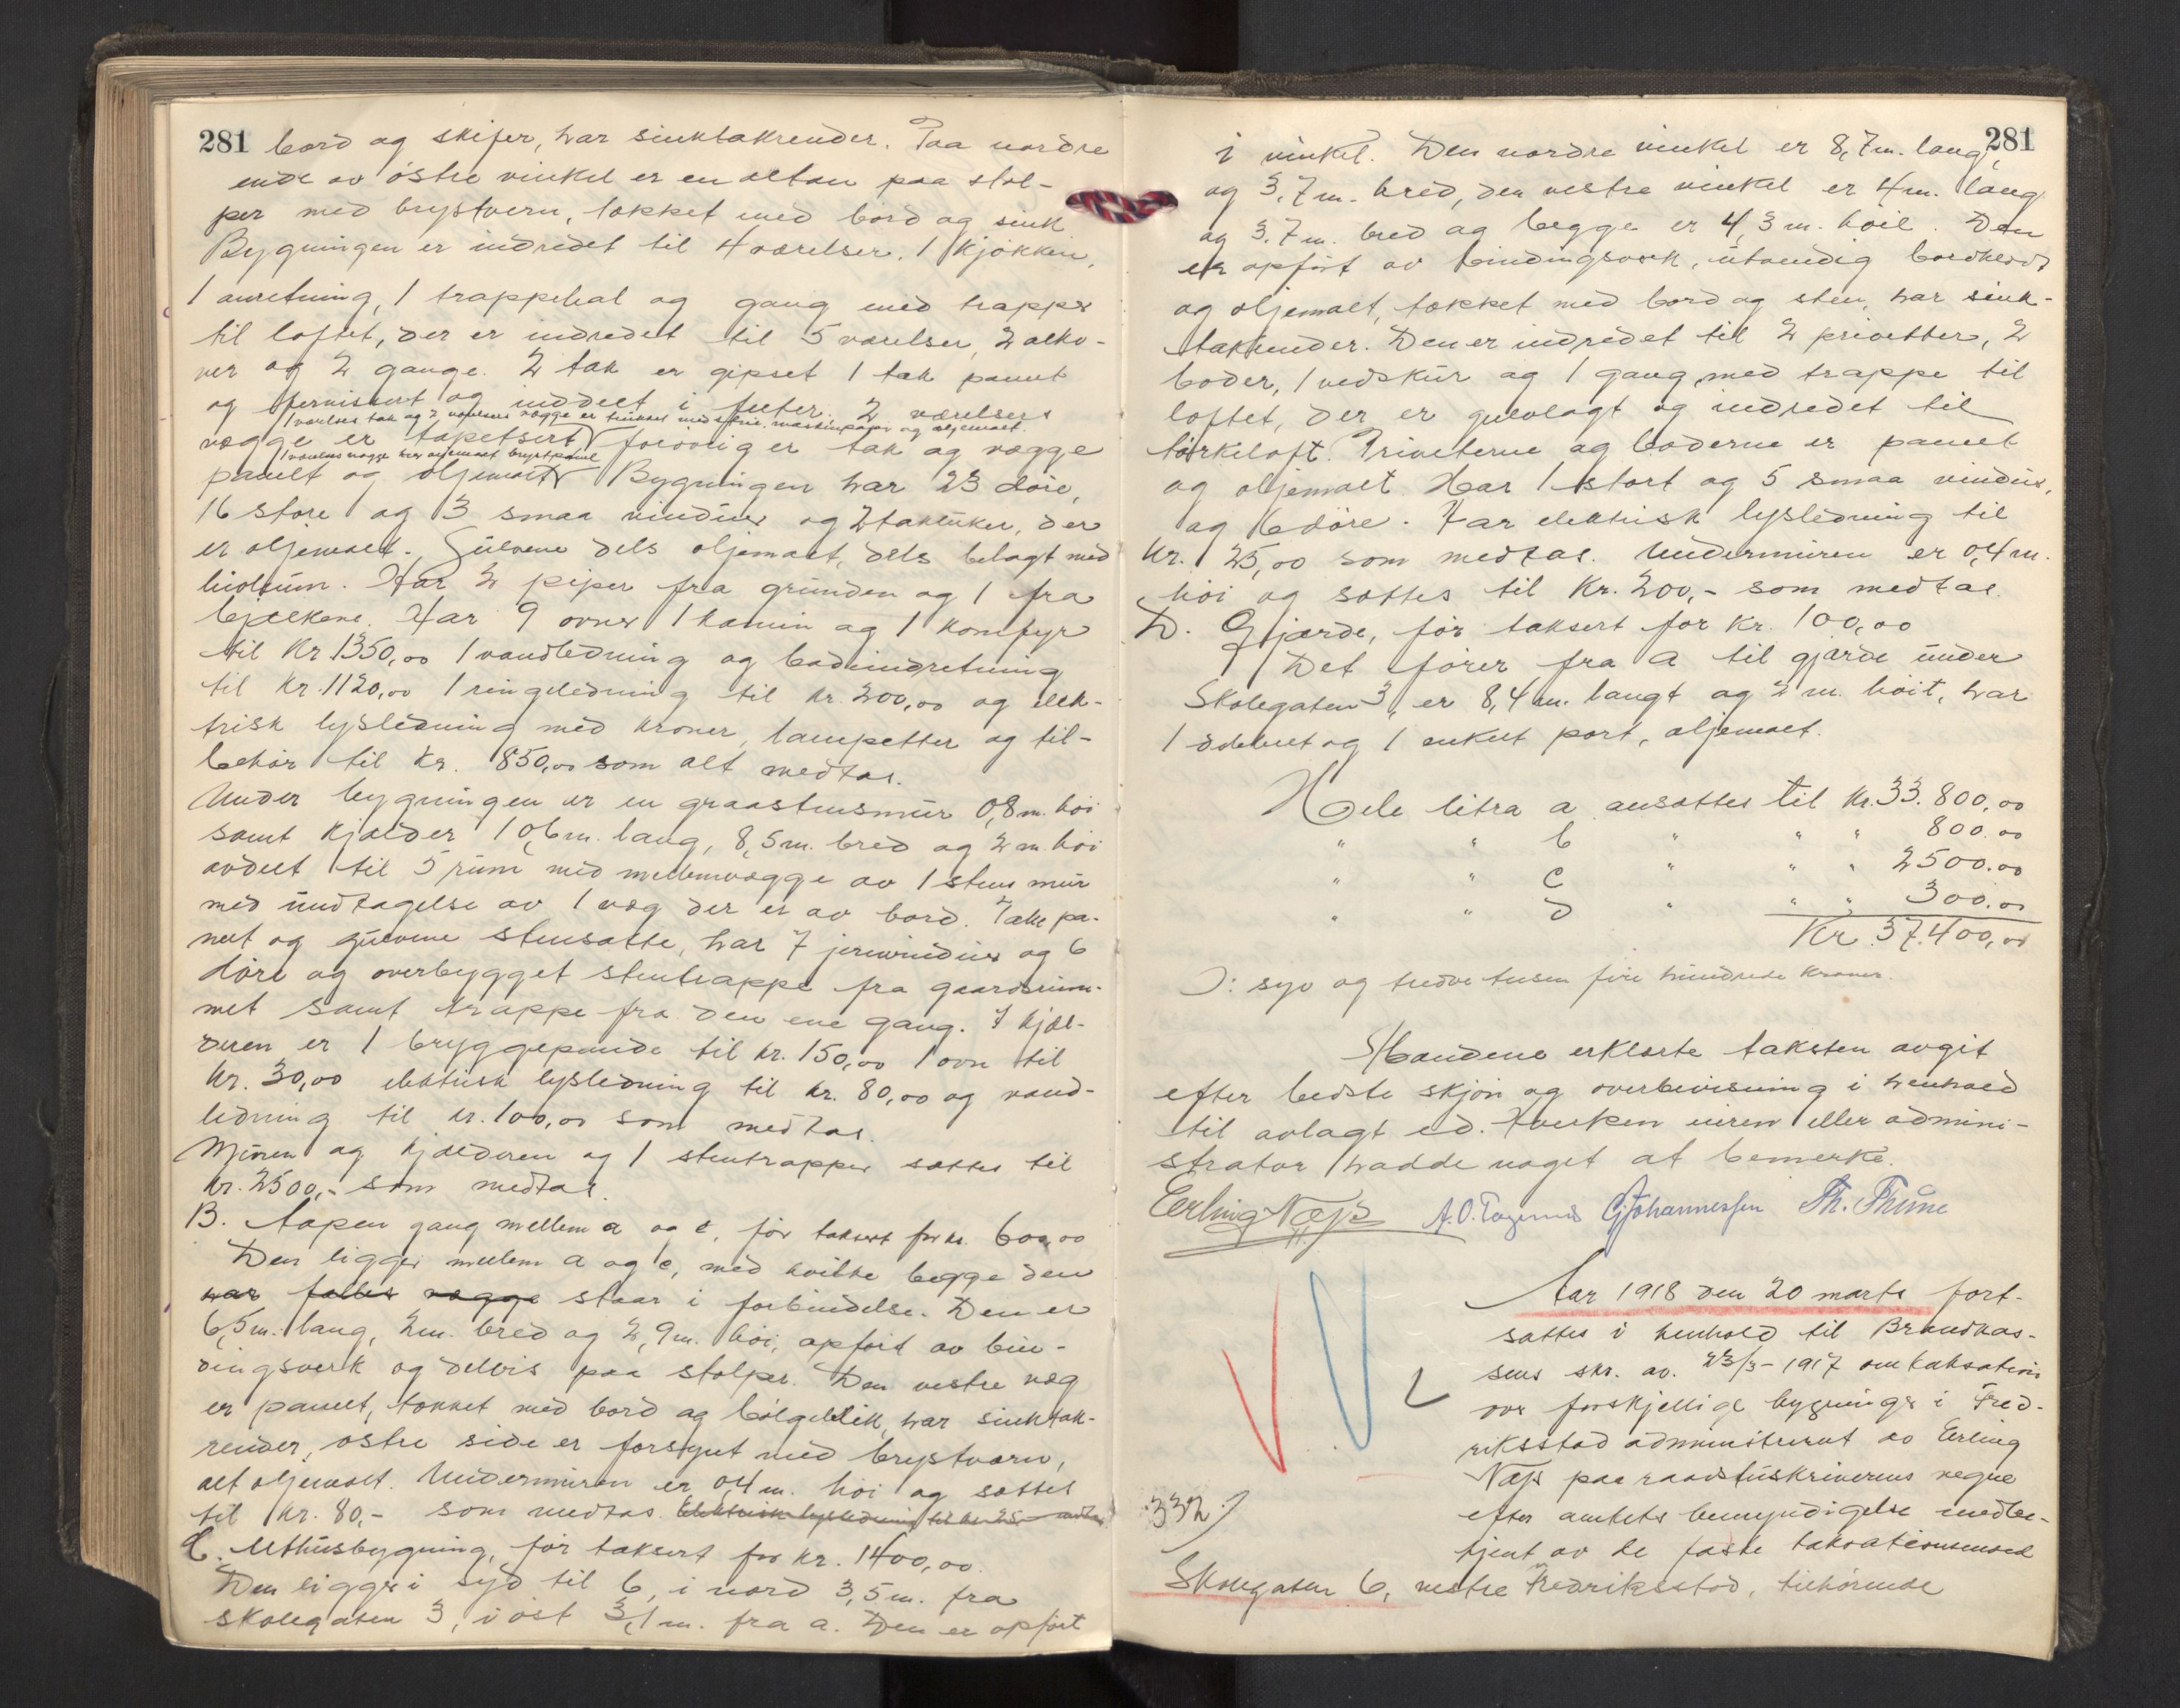 281 bord og skifer, har sinktakrender. Paa nordre
ende av østre vinkel er en altan paa stol-
per med brystvern, tækket med bord og sink
Bygningen er indredet til 4 værelser, 1 kjøkken,
1 anretning, 1 trappehal og gang med trapper
til loftet, der er indredet til 5 værelser, 2 alko-
ver og 2 gange. 2 tak er gipset 1 tak panelt
og fernissert og inddelt i felter. 2 værelsers
1 værelses tak og 2 værelsers vægge er trukket med strie, maskinpapir og oljemalt.
vægge er tapetsert, forøvrig er tak og vægge
1 værelses vægge har oljemalt brystpanel
panelt og oljemalt. Bygningen har 23 døre,
16 store og 3 smaa vinduer og 2 takluker, der
er oljemalt. Gulvene dels oljemalt, dels belagt med
linoleum. Har 2 piper fra grunden og 1 fra
bjælkene. Har 9 ovner 1 kamin og 1 komfyr
til Kr 1350,00 1 vandledning og badeindretning
til Kr. 1120,00 1 ringeledning til Kr. 200,00 og elek-
trisk lysledning med kroner, lampetter og til-
behør til Kr. 850,00 som alt medtas.
Under bygningen er en graastensmur 0,8 m. høi
samt kjælder 10,6 m. lang, 8,5 m. bred og 2 m høi
avdelt til 5 rum med mellemvægge av 1 stens mur
med undtagelse av 1 væg der er av bord. Take pa-
nelt og gulvene stensatte, har 7 jernvinduer og 6
døre og overbygget stentrappe fra gaardsrum-
met samt trappe fra den ene gang. I kjæl-
deren er 1 bryggepande til Kr. 150,00 1 ovn til
Kr. 30,00 elektrisk lysledning til Kr. 80,00 og vand-
ledning til Kr. 100,00 som medtas.
Muren og kjælderen og 1 stentrapper sættes til
Kr. 2500,- som medtas.
B. Aapen gang mellem a og c, før taksert for kr. 600,00
Den ligger mellem a og c, med hvilke begge den
har fælles vægge staar i forbindelse. Den er
6,5 m. lang, 2 m. bred og 2,9 m. høi, opført av bin-
dingsverk og delvis paa stolper. Den vestre væg
er panelt, tækket med bord og bølgeblik, har sinktak-
render, østre side er forsynt med brystværn,
alt oljemalt. Undermuren er 0,4 m. høi og sættes
til Kr. 80,- som medtas. Elektrisk lysledning til Kr. 25,- medtas
C. Uthusbygning, før taksert for Kr. 1400,00.
Den ligger i syd til b, i nord 3,5 m. fra
skolegaten 3, i øst 3,1 m. fra a. Den er opført
281
i vinkel. Den nordre vinkel er 8,7 m. lang,
og 3,7 m. bred, den vestre vinkel er 4 m. lang
og 3,7 m. bred og begge er 4,3 m. høie. Den
er opført av bindingsverk, utvendig bordklædt
og oljemalt, tækket med bord og sten, har sink-
takrender. Den er indredet til 2 privetter, 2
boder, 1 vedskur og 1 gang med trappe til
loftet, der er gulvlagt og indredet til
tørkeloft. Priveterne og boderne er panelt
og oljemalt. Har 1 stort og 5 smaa vinduer,
og 6 døre. Har elektrisk lysledning til
Kr. 25,00 som medtas. Undermuren er 0,4 m.
høi og sættes til Kr. 200,- som medtas.
D. Gjærde, før taksert for Kr. 100,00
Det fører fra a til gjærde under
Skolegaten 3, er 8,4 m. langt og 2 m. høit, har
1 dobbelt og 1 enkelt port, oljemalt.
Hele litra a ansættes til Kr. 33.800,00
" " b " " " 800.00
" " c " " " 2500.00
" " d " " " 300.00
Kr. 37.400,00
ↄ: syv og tredve tusen fire hundrede kroner.
Mændene erklærte taksten avgit
efter bedste skjøn og overbevisning i henhold
til avlagt ed. Hverken eieren eller admini-
strator hadde noget at bemerke.
Erling Næss A. O. G. Johannessen Th. Thune
Aar 1918 den 20 marts fort-
sattes i henhold til Brandkas-
sens skr. av. 23/3-1917 omtaksation
over forskjellige bygninger i Fred-
riksstad administrert av Erling
Næss paa raadstuskriverens vegne
efter amtets bemyndigelse medbe-
tjent av de faste taksationsmænd
332)
Skolegaten 6, vestre Fredriksstad, tilhørende